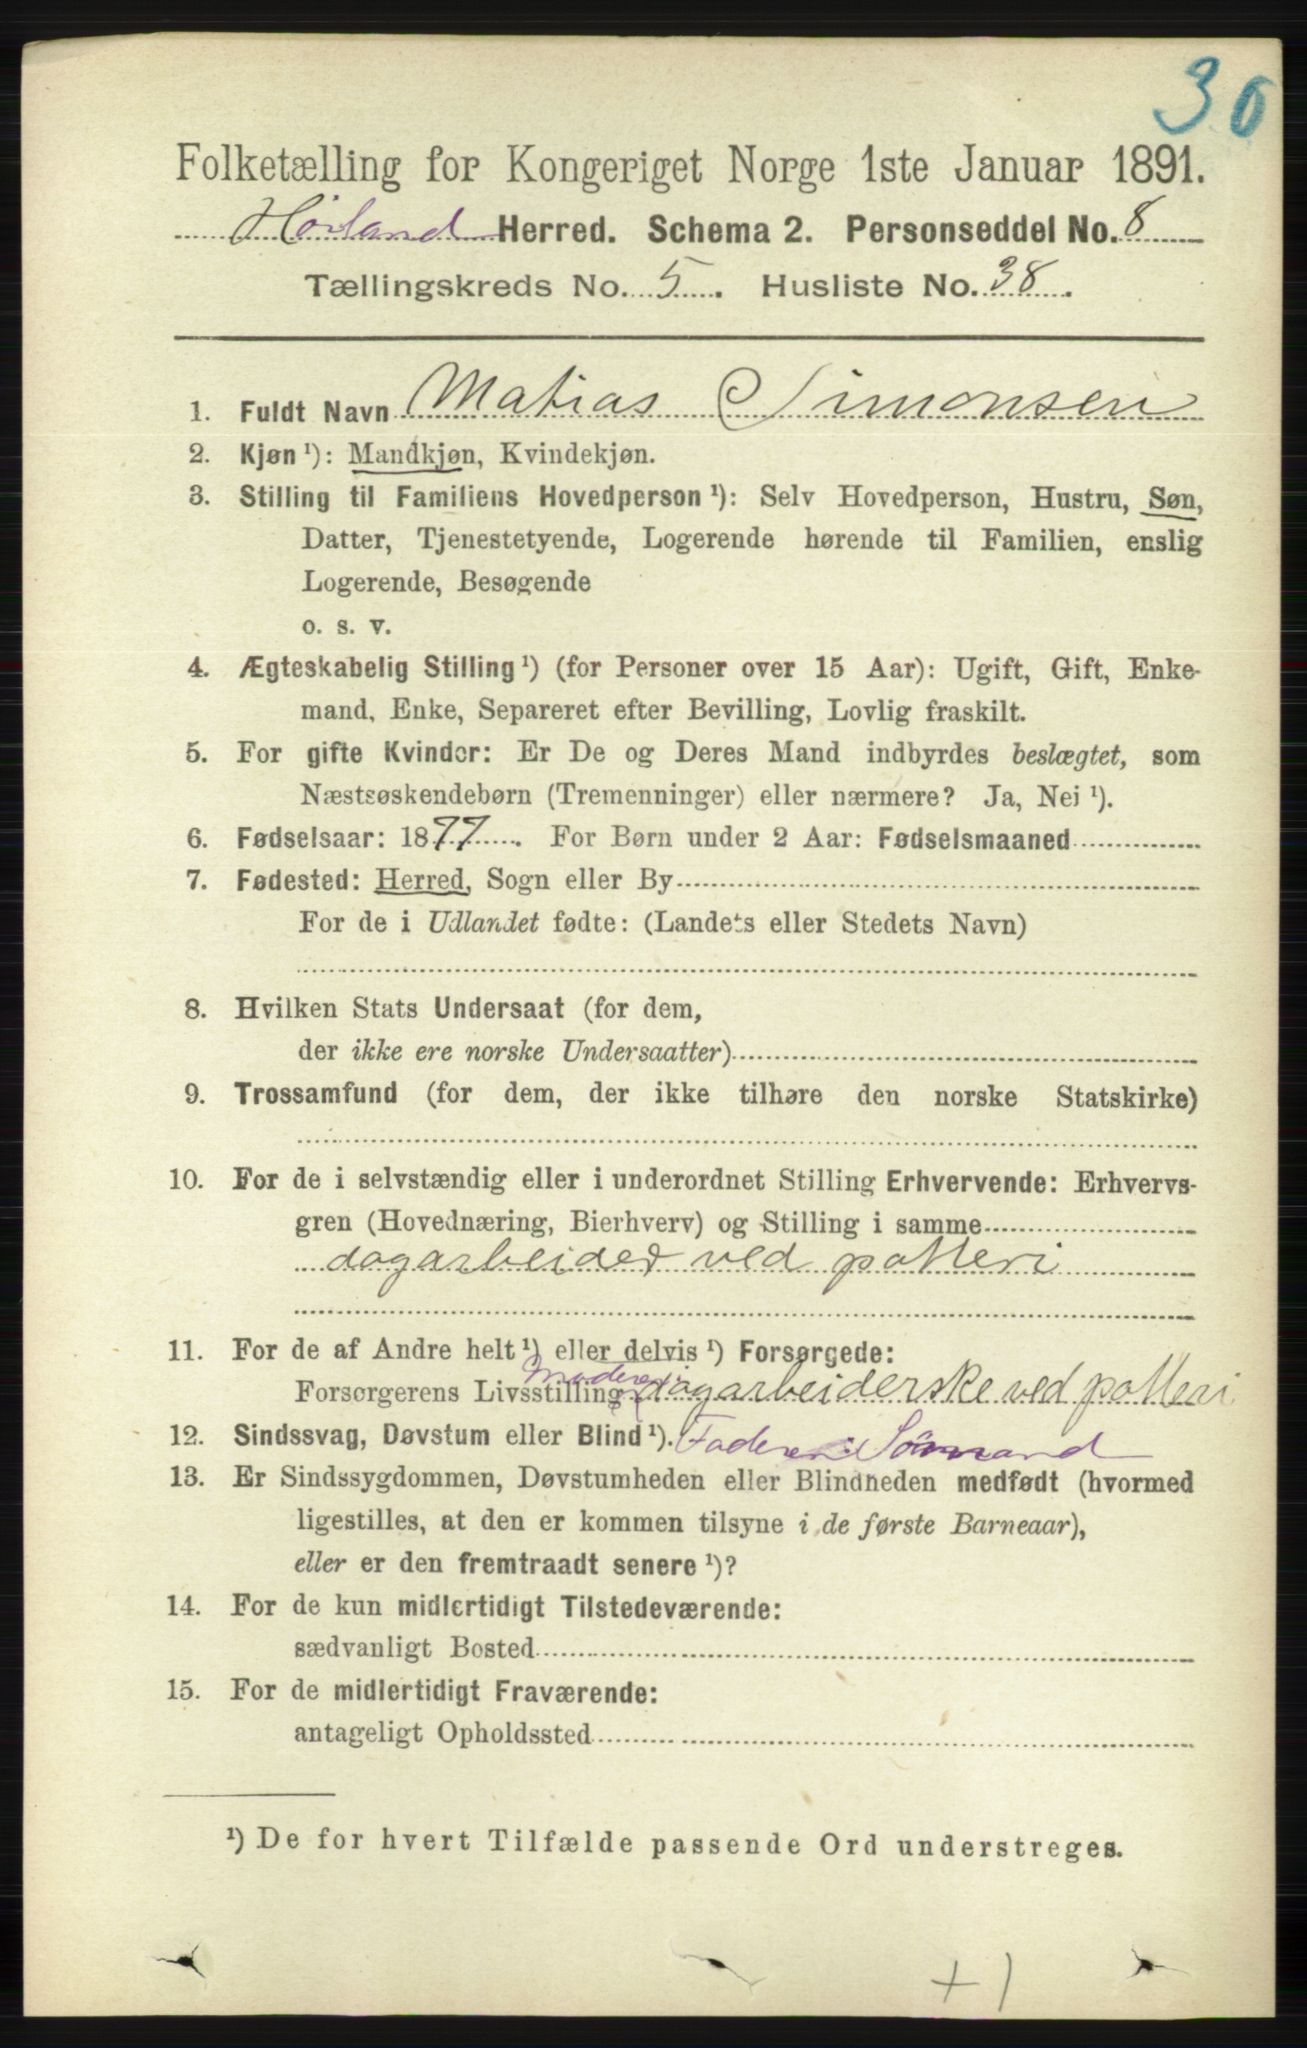 36
Folketælling for Kongeriget Norge 1ste Januar 1891.
Høiland Herred. Schema 2. Personseddel No. 8
Tællingskreds No. 5. Husliste No. 38.
1. Fuldt Navn Matias Simonsen
2. Kjøn ¹): Mandkjøn, Kvindekjøn.
3. Stilling til Familiens Hovedperson ¹): Selv Hovedperson, Hustru, Søn,
Datter, Tjenestetyende, Logerende hørende til Familien, enslig
Logerende, Besøgende
o. s. v.
4. Ægteskabelig Stilling ¹) (for Personer over 15 Aar): Ugift, Gift, Enke-
mand, Enke, Separeret efter Bevilling, Lovlig fraskilt.
5. For gifte Kvinder: Er De og Deres Mand indbyrdes beslægtet, som
Næstsøskendebørn (Tremenninger) eller nærmere? Ja, Nei ¹).
6. Fødselsaar: 1877. For Børn under 2 Aar: Fødselsmaaned
7. Fødested: Herred, Sogn eller By
For de i Udlandet fødte: (Landets eller Stedets Navn)
8. Hvilken Stats Undersaat (for dem,
der ikke ere norske Undersaatter)
9. Trossamfund (for dem, der ikke tilhøre den norske Statskirke)
10. For de i selvstændig eller i underordnet Stilling Erhvervende: Erhvervs-
gren (Hovednæring, Bierhverv) og Stilling i samme
dagarbeider ved potteri
11. For de af Andre helt ¹) eller delvis ¹) Forsørgede:
Moderen:
Forsørgerens Livsstilling dagarbeiderske ved potteri
12. Sindssvag, Døvstum eller Blind ¹). Faderen: Sömand
13. Er Sindssygdommen, Døvstumheden eller Blindheden medfødt (hvormed
ligestilles, at den er kommen tilsyne i de første Barneaar),
eller er den fremtraadt senere ¹)?
14. For de kun midlertidigt Tilstedeværende:
sædvanligt Bosted
15. For de midlertidigt Fraværende:
antageligt Opholdssted
¹) De for hvert Tilfælde passende Ord understreges.
+1